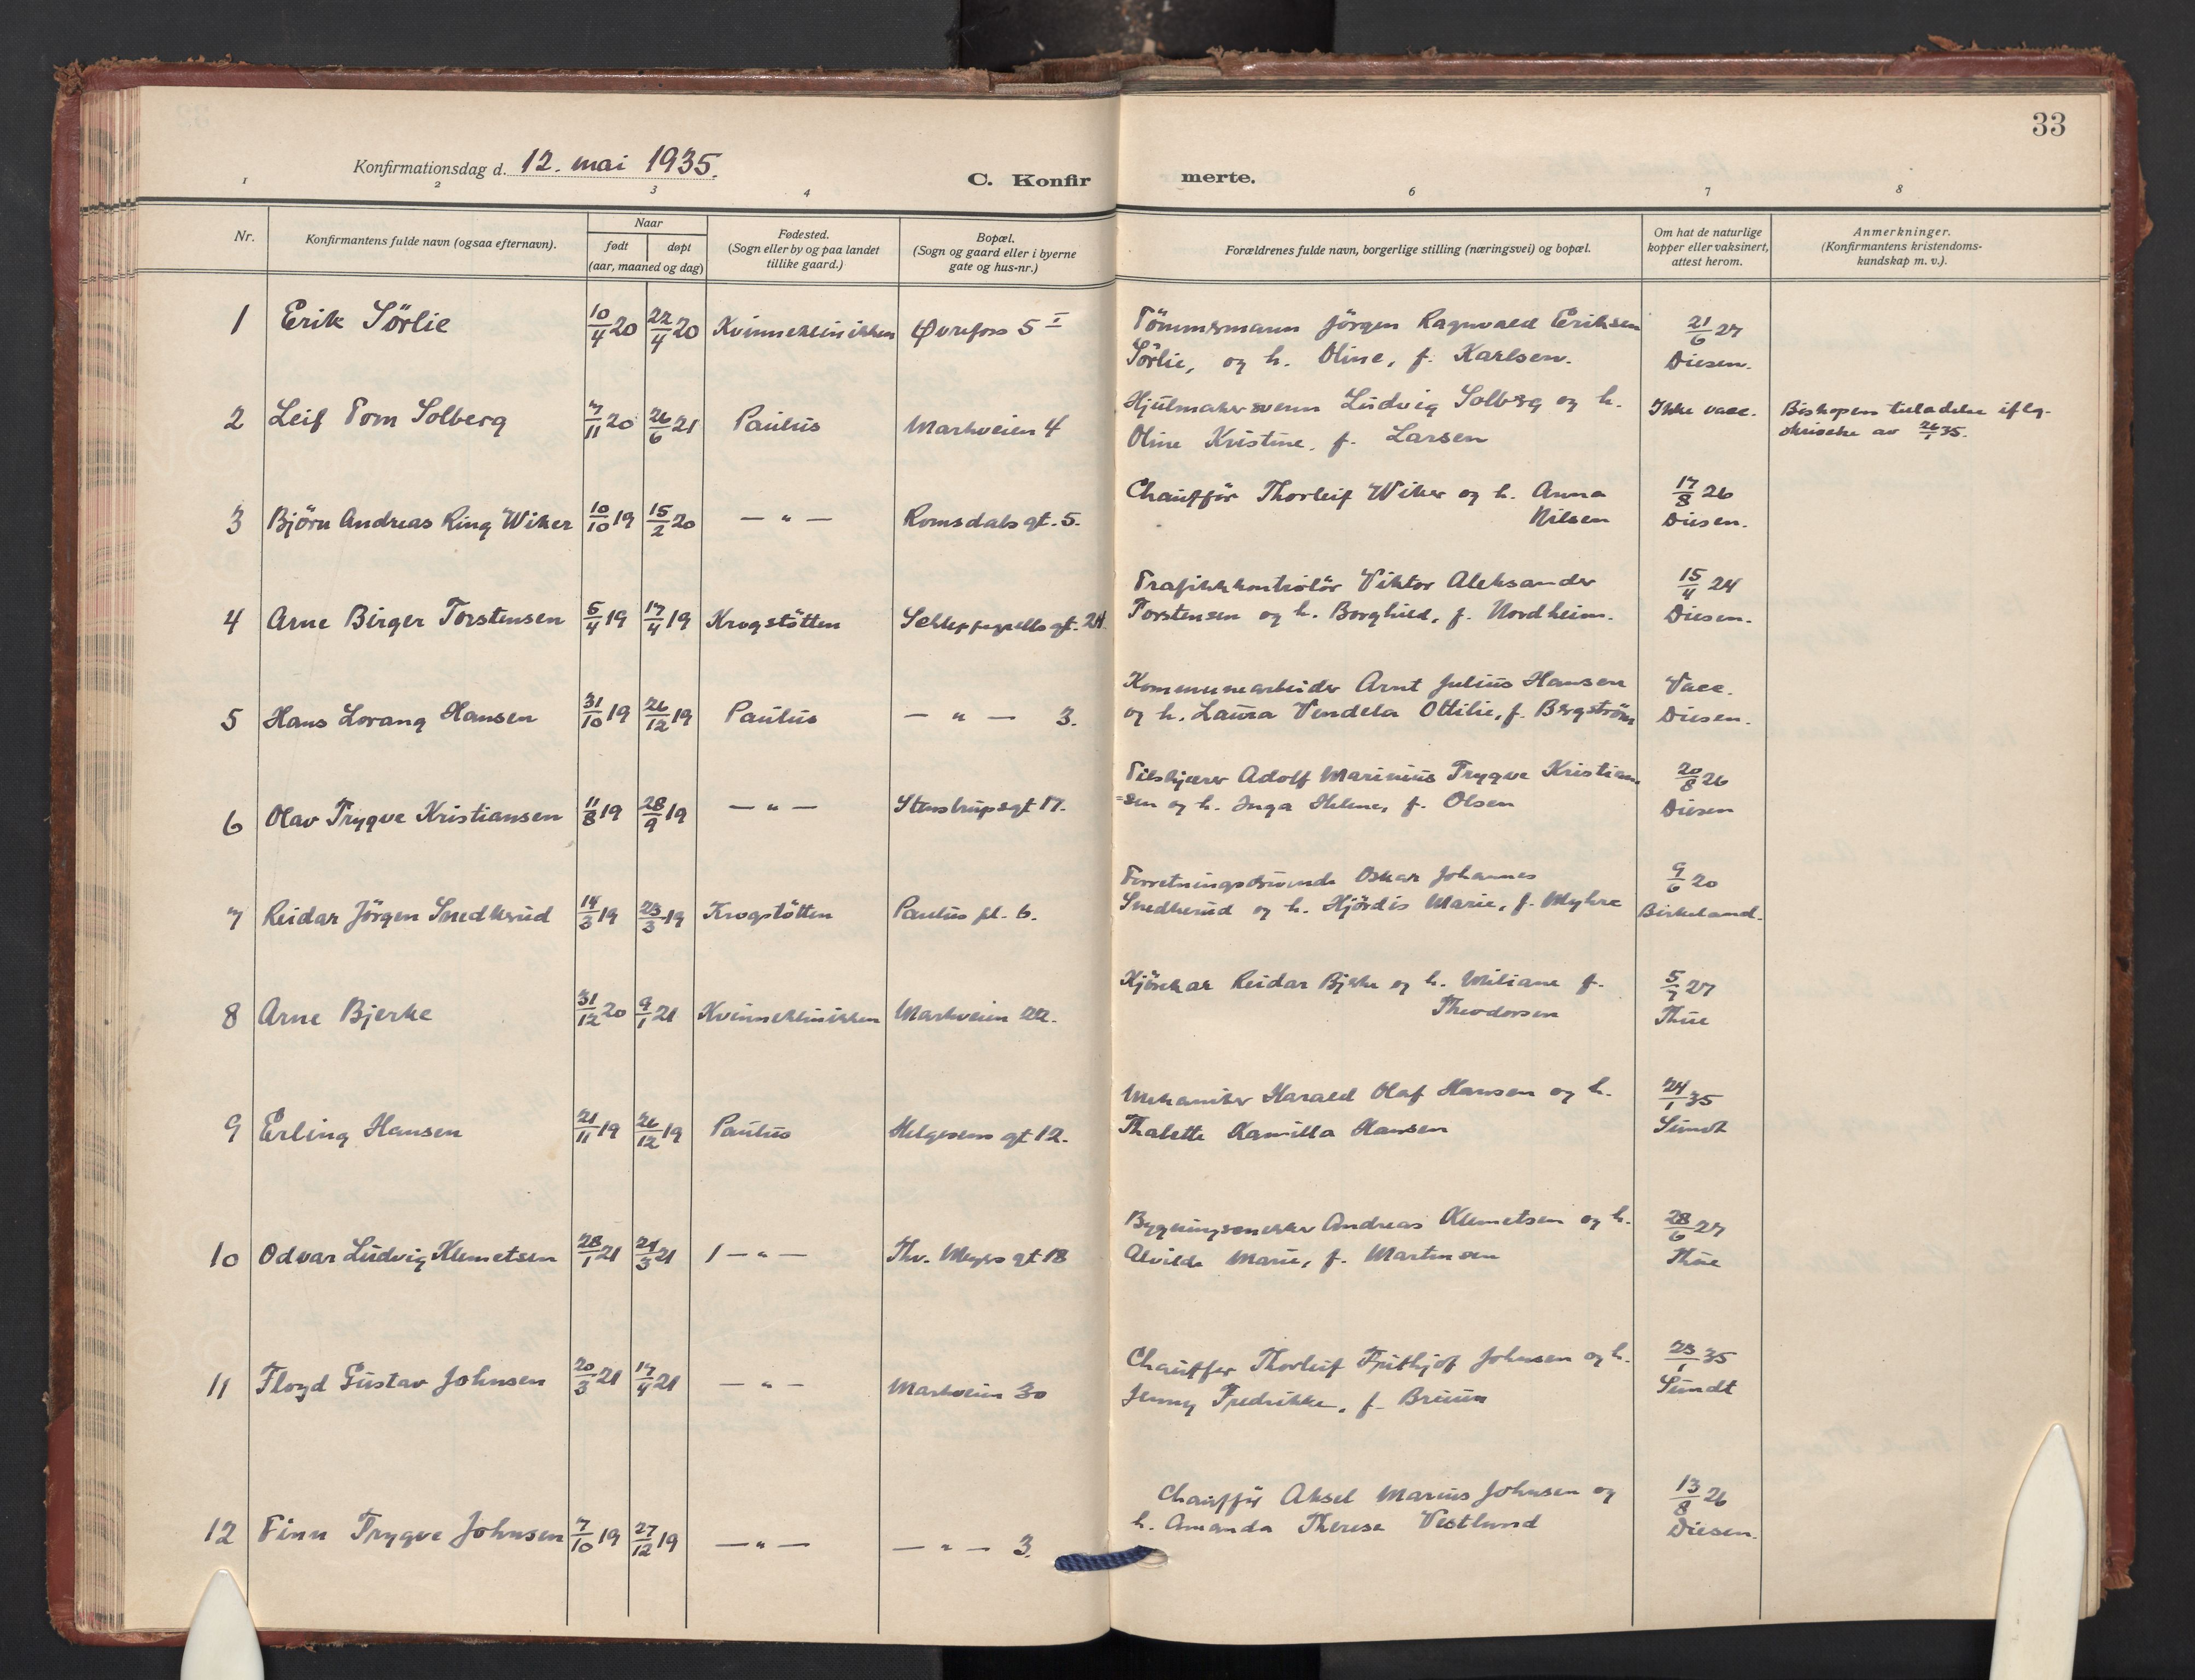 33
Konfirmationsdag d. 12. mai 1935.
C. Konfirmerte.
1 2 3 4 6 7 8
Nr. Konfirmantens fulde navn (ogsaa efternavn). Naar født døpt (aar, maaned og dag) Fødested. (Sogn eller by og paa landet tillike gaard.) Bopæl. (Sogn og gaard eller i byerne gate og hus-nr.) Forældrenes fulde navn, borgerlige stilling (næringsvei) og bopæl. Om hat de naturlige kopper eller vaksinert, attest herom. Anmerkninger. (Konfirmantens kristendoms-kundskap m. v.).
1 Erik Sörlie 10/4 20 22/4 20 Kvinneklinikken Øvrefoss 5 I Tömmermann Jörgen Ragnvald Eriksen 21/6 27
Sörlie, og h. Oline, f. Karlsen. Diesen.
2 Leif Tom Solberg 7/11 20 26/6 21 Paulus Markveien 4 Hjulmakersvenn Ludvig Solberg og h. Ikke vacc. Biskopens tilladelse iflg.
Oline Kristine, f. Larsen skrivelse av 26/1 35.
3 Bjørn Andreas Ring Wiker 10/10 19 15/2 20 — " — Romsdals gt. 5. Chaufför Thorleif Wiker og h. Anna 17/8 26
Nilsen Diesen.
4 Arne Birger Torstensen 5/4 19 17/4 19 Krogstötten Schleppegrells gt. 24. Trafikkkontrolör Viktor Aleksander 15/4 24
Torstensen og h. Borghild, f. Nordheim. Diesen.
5 Hans Lorang Hansen 31/10 19 26/12 19 Paulus — " — 3. Kommunearbeider Arnt Julius Hansen Vacc.
og h. Laura Vendela Ottilie, f. Bergström Diesen.
6 Olav Trygve Kristiansen 11/8 19 28/9 19 — " — Stenstrups gt 17. Filskjærer Adolf Marinius Trygve Kristian 20/8 26
=sen og h. Inga Helene, f. Olsen Diesen
7 Reidar Jörgen Snedkerud 14/3 19 23/3 19 Krogstötten Paulus pl. 6. Forretningsdrivende Oskar Johannes 9/6 20
Snedkerud og h. Hjördis Marie, f. Myhre Birkeland.
8 Arne Bjerke 31/12 20 9/1 21 Kvinneklinikken Markveien 22. Kjörekar Reidar Bjerke og h. Miliane f. 5/7 27
Theodorsen Thue
9 Erling Hansen 21/11 19 26/12 19 Paulus Helgesens gt 12. Mekaniker Harald Olaf Hansen og h. 24/1 35
Thalette Kamilla Hansen Sundt
10 Odvar Ludvig Klemetsen 28/1 21 24/3 21 — " — Thv. Meyers gt 18 Bygningssnekker Andreas Klemetsen og h. 28/6 27
Alvilde Marie, f. Martinsen Thue
11 Floyd Gustav Johnsen 20/3 21 17/4 21 — " — Markveien 30 Chauffer Thorleif Frithjof Johnsen og h. 23/1 35
Jenny Fredrikke, f. Bruun Sundt
12 Finn Trygve Johnsen 7/10 19 27/12 19 — " — — " — 3. Chauffør Aksel Marius Johnsen og 13/8 26
h. Amanda Therese Vestlund Diesen.